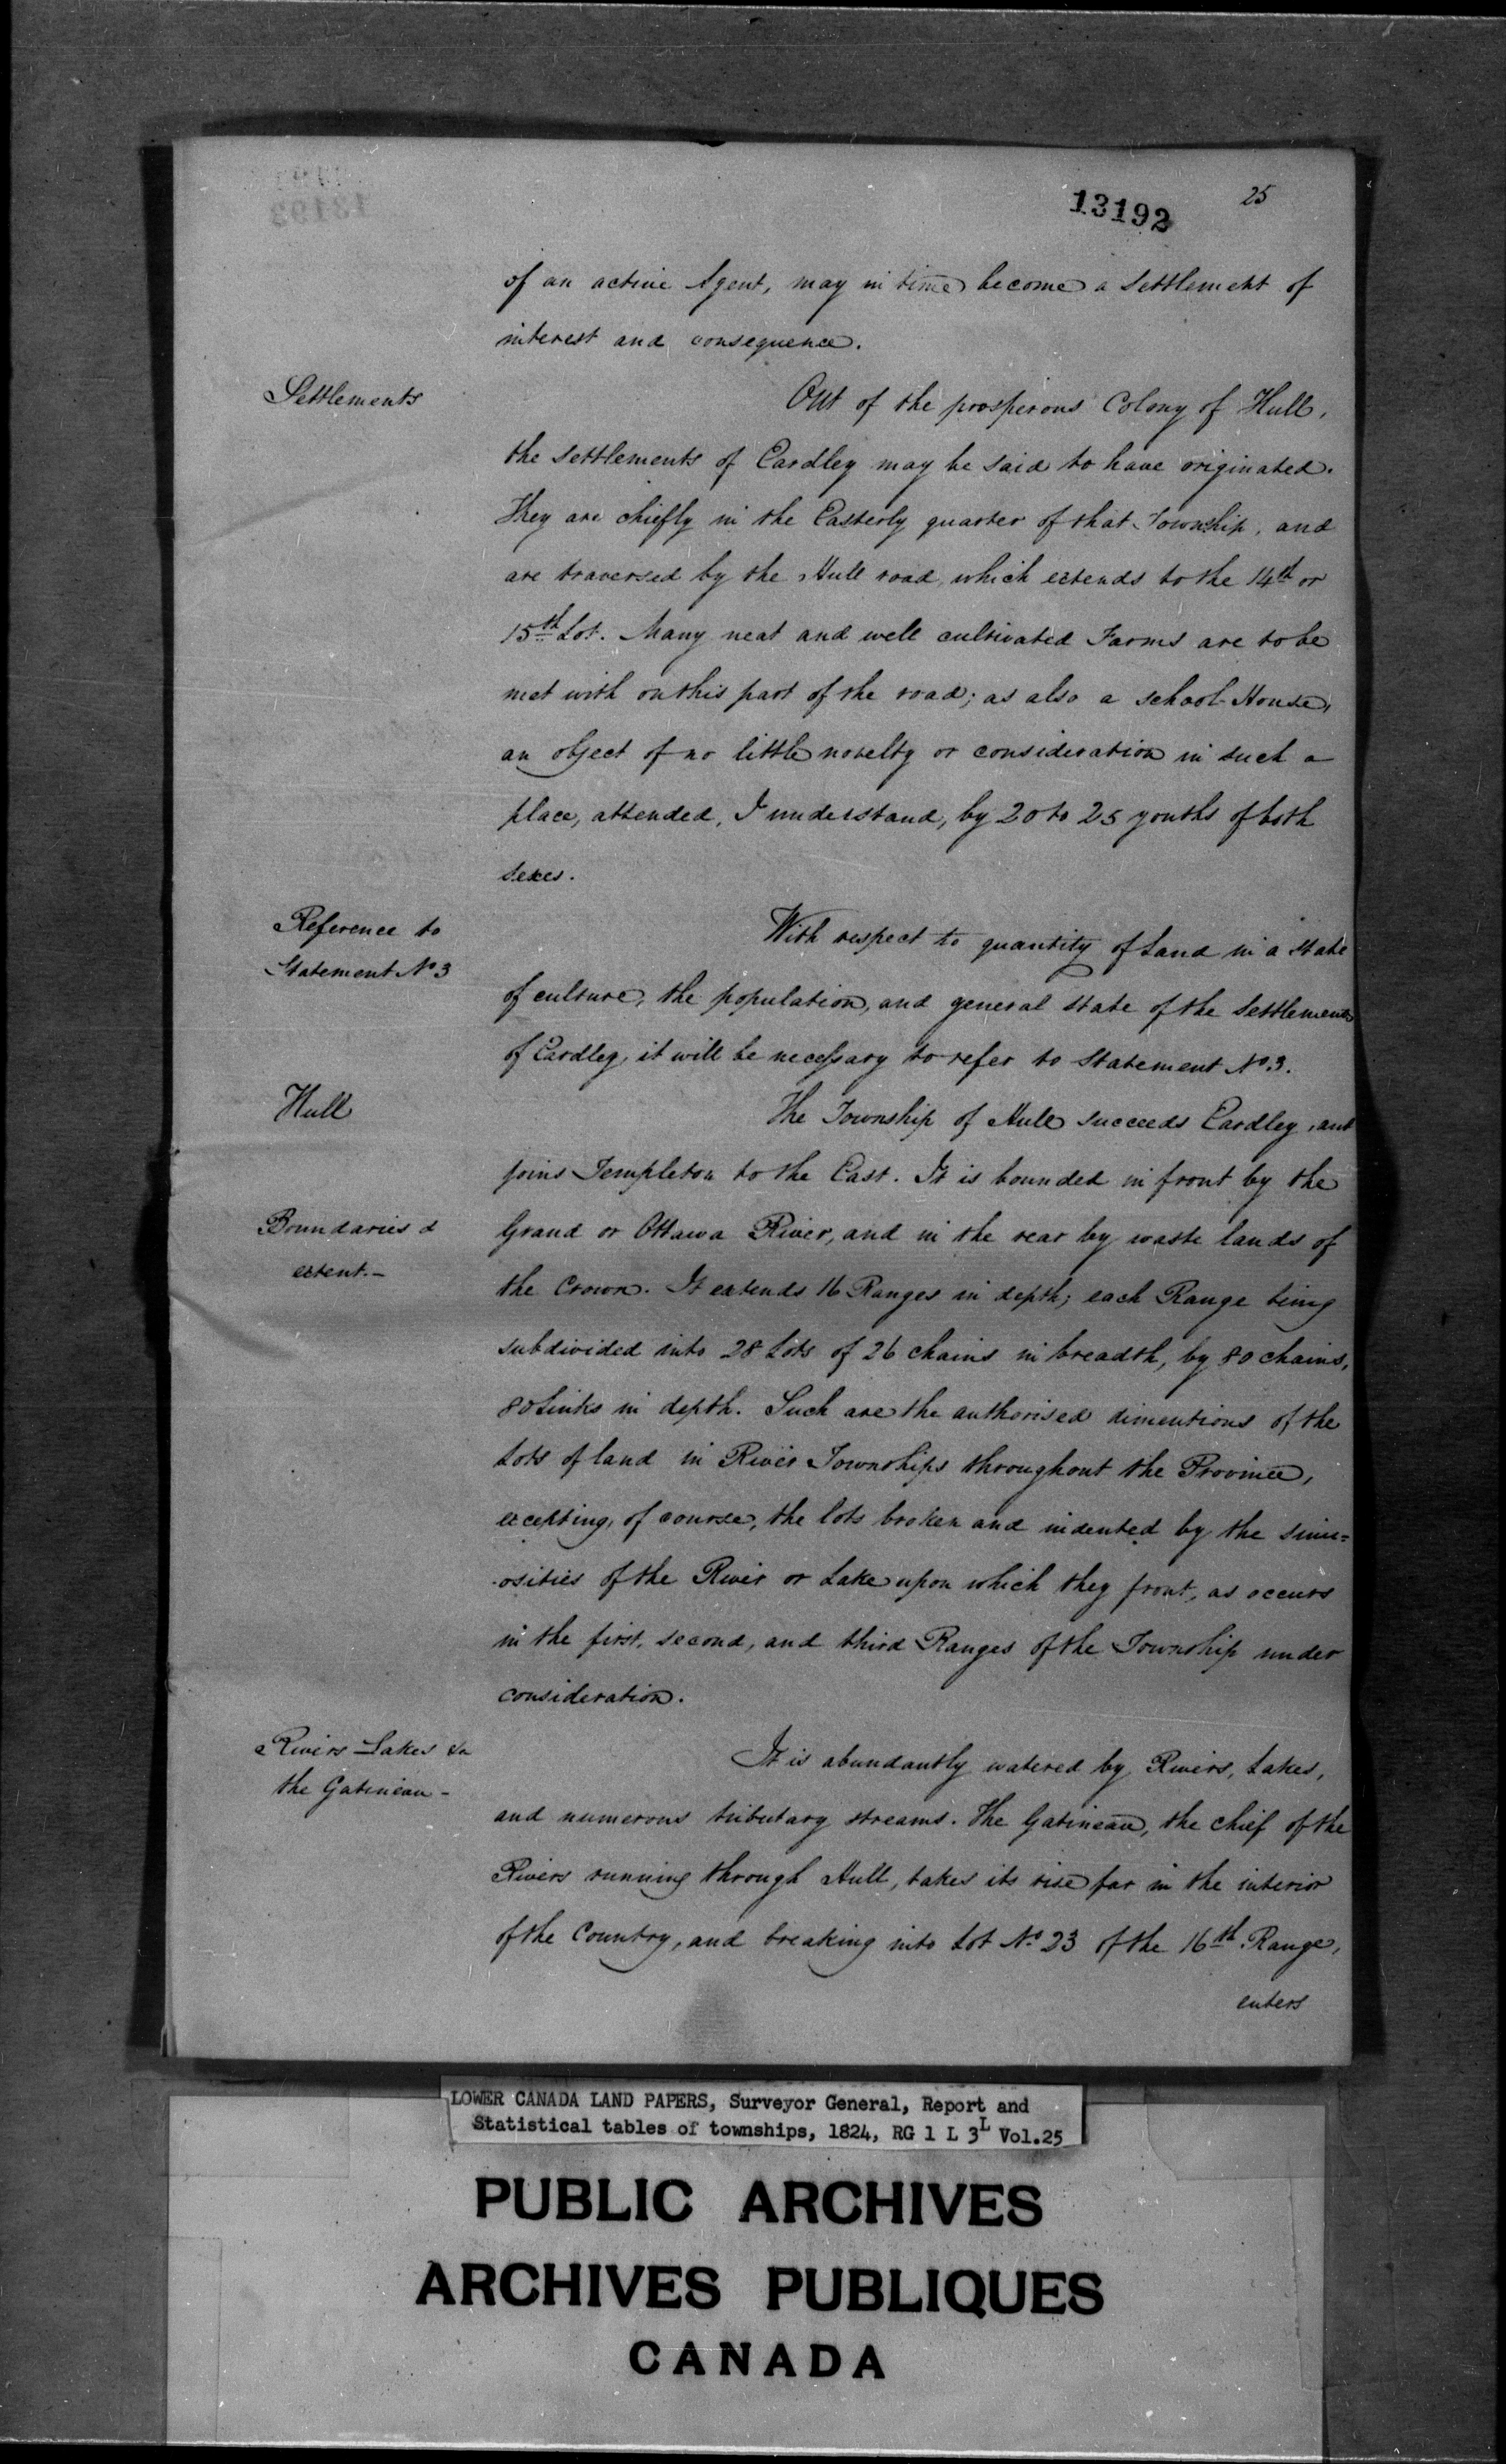 13192
25
of an active Agent, may in time become a Settlement of
interest and consequence.
Settlements
Out of the prosperous Colony of Hull,
the settlements of Eardley may be said to have originated.
They are chiefly in the Easterly quarter of that Township, and
are traversed by the Hull road, which extends to the 14th or
15th Lot. Many neat and well cultivated Farms are to be
met with on this part of the road; as also a school House,
an object of no little novelty or consideration in such a
place, attended, I understand, by 20 to 25 youths of both
sexes.
Reference to
Statement No 3
With respect to quantity of Land in a state
of culture, the population, and general state of the Settlements
of Eardley, it will be necessary to refer to Statement No. 3.
Hull
The Township of Hull succeeds Eardley, and
joins Templeton to the East. It is bounded in front by the
Boundaries &
extent.-
Grand or Ottawa River, and in the rear by waste lands of
the Crown. It extends 16 Ranges in depth; each Range being
subdivided into 28 Lots of 26 chains in breadth, by 80 chains,
80 Links in depth. Such are the authorised dimentions of the
Lots of land in River Townships throughout the Province,
excepting, of course, the lots broken and indented by the sinu=
-osities of the River or Lake upon which they front, as occurs
in the first, second, and third Ranges of the Township under
consideration.
Rivers Lakes &a
the Gatineau -
It is abundantly watered by Rivers, Lakes,
and numerous tributary streams. The Gatineau, the chief of the
Rivers running through Hull, takes its rise far in the interior
of the Country, and breaking into Lot No. 23 of the 16th Range,
enters
LOWER CANADA LAND PAPERS, Surveyor General, Report and
Statistical tables of townships, 1824, RG 1 L 3L Vol.25
PUBLIC ARCHIVES
ARCHIVES PUBLIQUES
CANADA